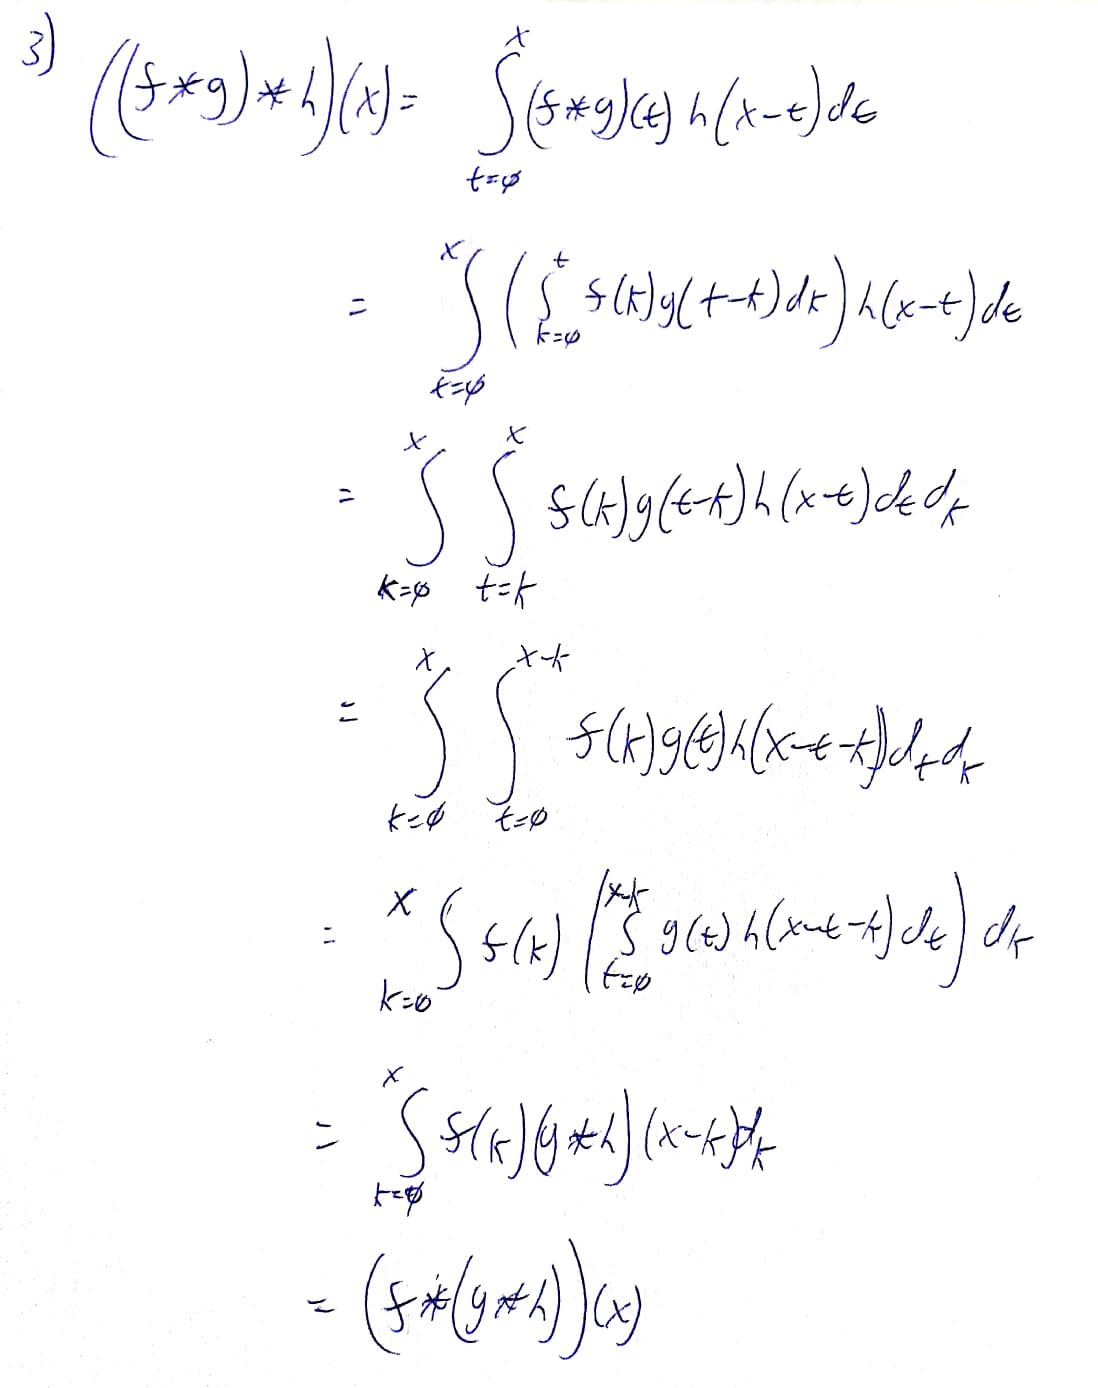 3) ((f*g)*h)(x) = ∫_{t=0}^{x} (f*g)(t) h(x-t) dt
= ∫_{t=0}^{x} ( ∫_{k=0}^{t} f(k) g(t-k) dk ) h(x-t) dt
= ∫_{k=0}^{x} ∫_{t=k}^{x} f(k) g(t-k) h(x-t) dt dk
= ∫_{k=0}^{x} ∫_{t=0}^{x-k} f(k) g(t) h(x-t-k) dt dk
= ∫_{k=0}^{x} f(k) ( ∫_{t=0}^{x-k} g(t) h(x-t-k) dt ) dk
= ∫_{k=0}^{x} f(k) (g*h)(x-k) dk
= (f*(g*h))(x)